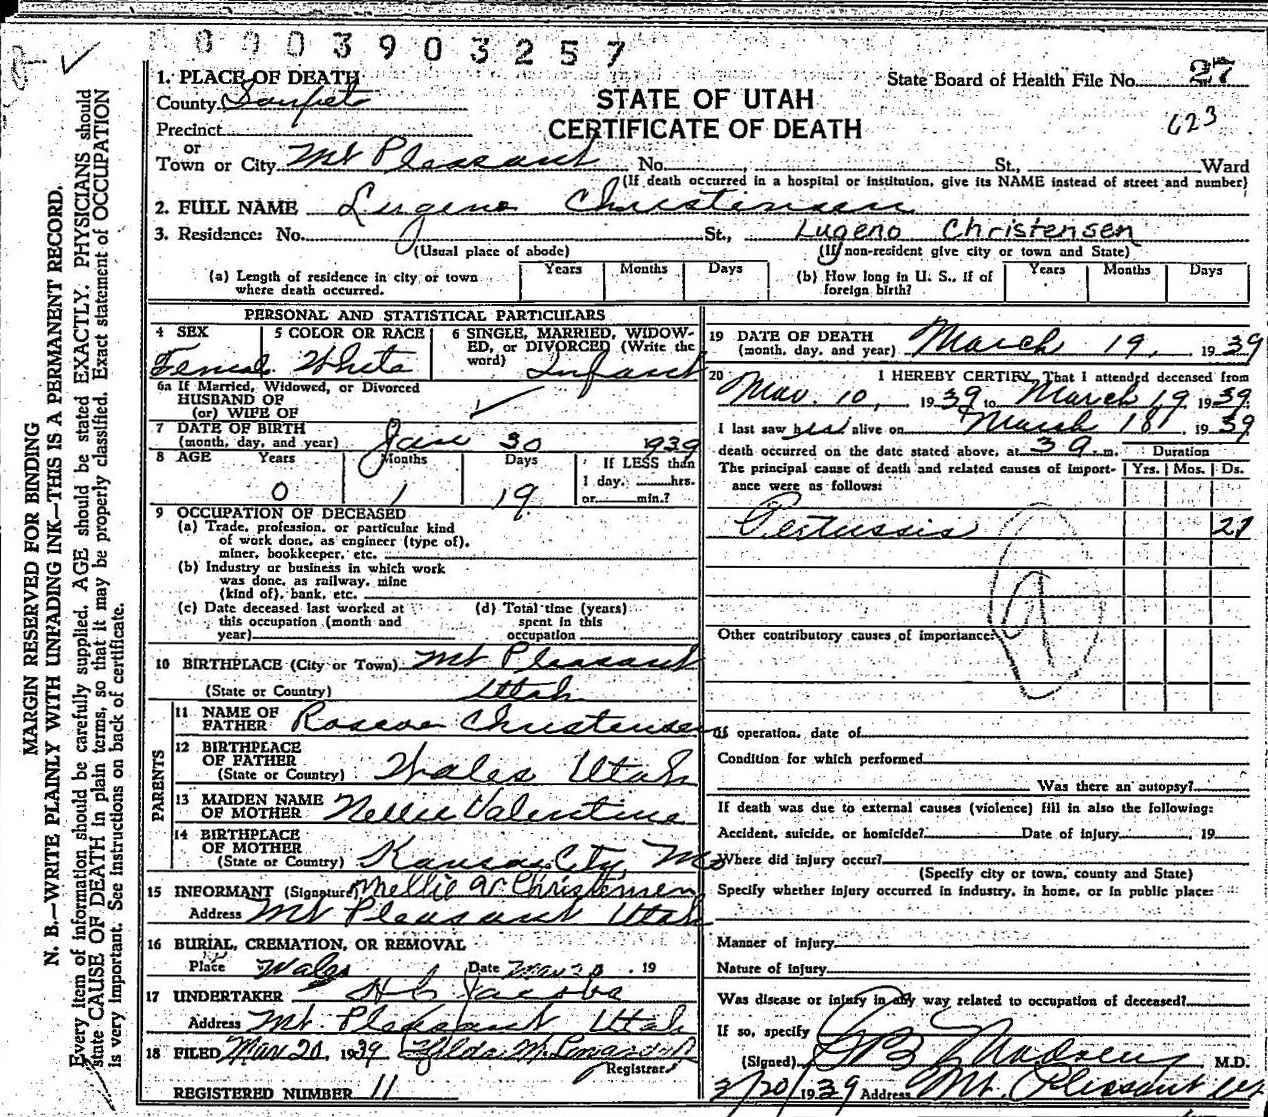 0003903257
1. PLACE OF DEATH
State Board of Health File No. 27
County Sanpete
STATE OF UTAH
623
Precinct
CERTIFICATE OF DEATH
or
Town or City Mt Pleasant No. St., Ward
(If death occurred in a hospital or institution, give its NAME instead of street and number)
2. FULL NAME Lugeno Christensen
3. Residence: No. St., Lugeno Christensen
(Usual place of abode) (If non-resident give city or town and State)
(a) Length of residence in city or town where death occurred. Years Months Days (b) How long in U. S., if of foreign birth? Years Months Days
PERSONAL AND STATISTICAL PARTICULARS
4 SEX 5 COLOR OR RACE 6 SINGLE, MARRIED, WIDOWED, or DIVORCED (Write the word)
Female White Infant
6a If Married, Widowed, or Divorced
HUSBAND OF
(or) WIFE OF
7 DATE OF BIRTH
(month, day, and year) Jan 30 1939
8 AGE Years Months Days If LESS than
1 day, hrs.
0 1 19 or min.?
9 OCCUPATION OF DECEASED
(a) Trade, profession, or particular kind
of work done, as engineer (type of),
miner, bookkeeper, etc.
(b) Industry or business in which work
was done, as railway, mine
(kind of), bank, etc.
(c) Date deceased last worked at
this occupation (month and
year)
(d) Total time (years)
spent in this
occupation
10 BIRTHPLACE (City or Town) Mt Pleasant
(State or Country) Utah
PARENTS
11 NAME OF
FATHER Roscoe Christensen
12 BIRTHPLACE
OF FATHER
(State or Country) Wales Utah
13 MAIDEN NAME
OF MOTHER Nellie Valentine
14 BIRTHPLACE
OF MOTHER
(State or Country) Kansas City, Mo
15 INFORMANT (Signature) Nellie V. Christensen
Address Mt Pleasant Utah
16 BURIAL, CREMATION, OR REMOVAL
Place Wales Date Mar 20 . 19
17 UNDERTAKER H C Jacobs
Address Mt. Pleasant Utah
18 FILED Mar 20, 1939
Registrar
REGISTERED NUMBER 11
19 DATE OF DEATH
(month, day, and year) March 19, 1939
20 I HEREBY CERTIFY, That I attended deceased from
Mar. 10, 1939 to March 19 1939
I last saw her alive on March 18 1939
death occurred on the date stated above, at 3 a m.
Duration
The principal cause of death and related causes of importance were as follows: Yrs. Mos. Ds.
Pertussis 21
Other contributory causes of importance:
If operation, date of
Condition for which performed
Was there an autopsy?
If death was due to external causes (violence) fill in also the following:
Accident, suicide, or homicide? Date of injury , 19
Where did injury occur?
(Specify city or town, county and State)
Specify whether injury occurred in industry, in home, or in public place:
Manner of injury
Nature of injury
Was disease or injury in any way related to occupation of deceased?
If so, specify
(Signed) Madsen M.D.
3/20/1939 Address Mt. Pleasant Ut.
MARGIN RESERVED FOR BINDING
N. B.—WRITE PLAINLY WITH UNFADING INK—THIS IS A PERMANENT RECORD.
Every item of information should be carefully supplied. AGE should be stated EXACTLY. PHYSICIANS should
state CAUSE OF DEATH in plain terms, so that it may be properly classified. Exact statement of OCCUPATION
is very important. See instructions on back of certificate.